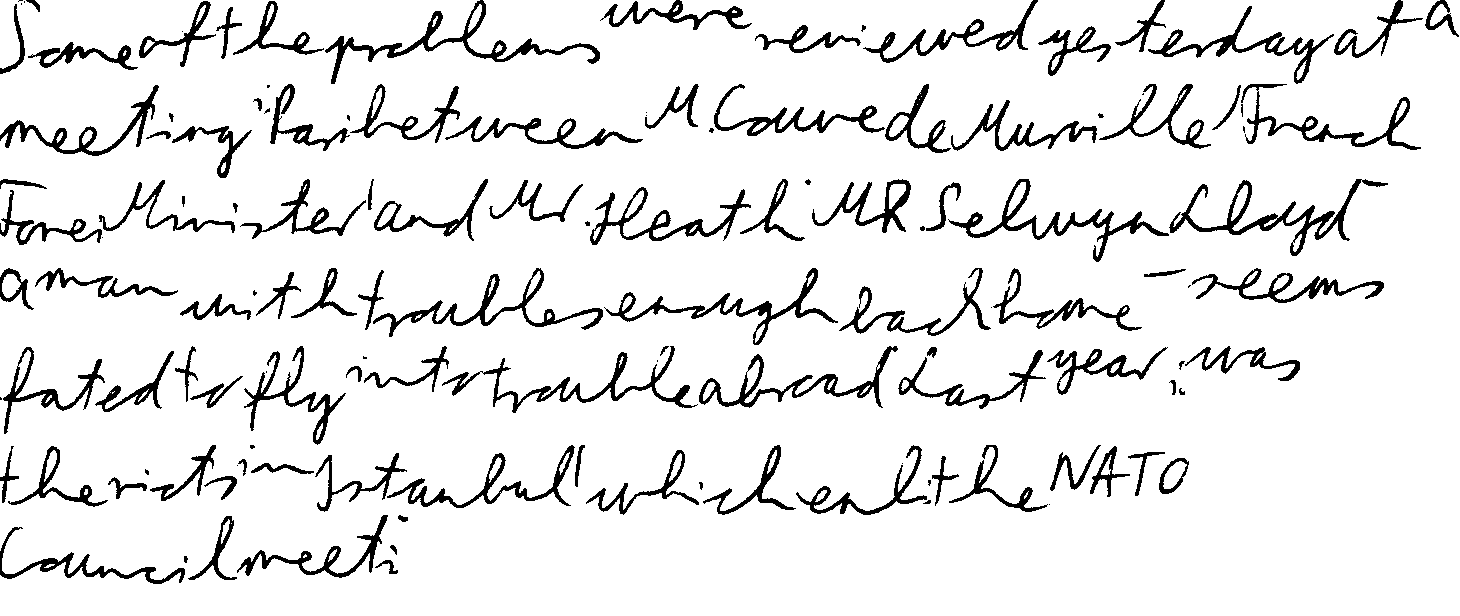 Some of the problems were reviewed yesterday at a
meeting in Paris between M. Couve de Murville, French
Foreign Minister, and Mr. Heath. MR. Selwyn Lloyd
a man with troubles enough back home - seems
fated to fly into trouble abroad Last year, it was
the riots in Istanbul, which enlit the NATO
Council meeti